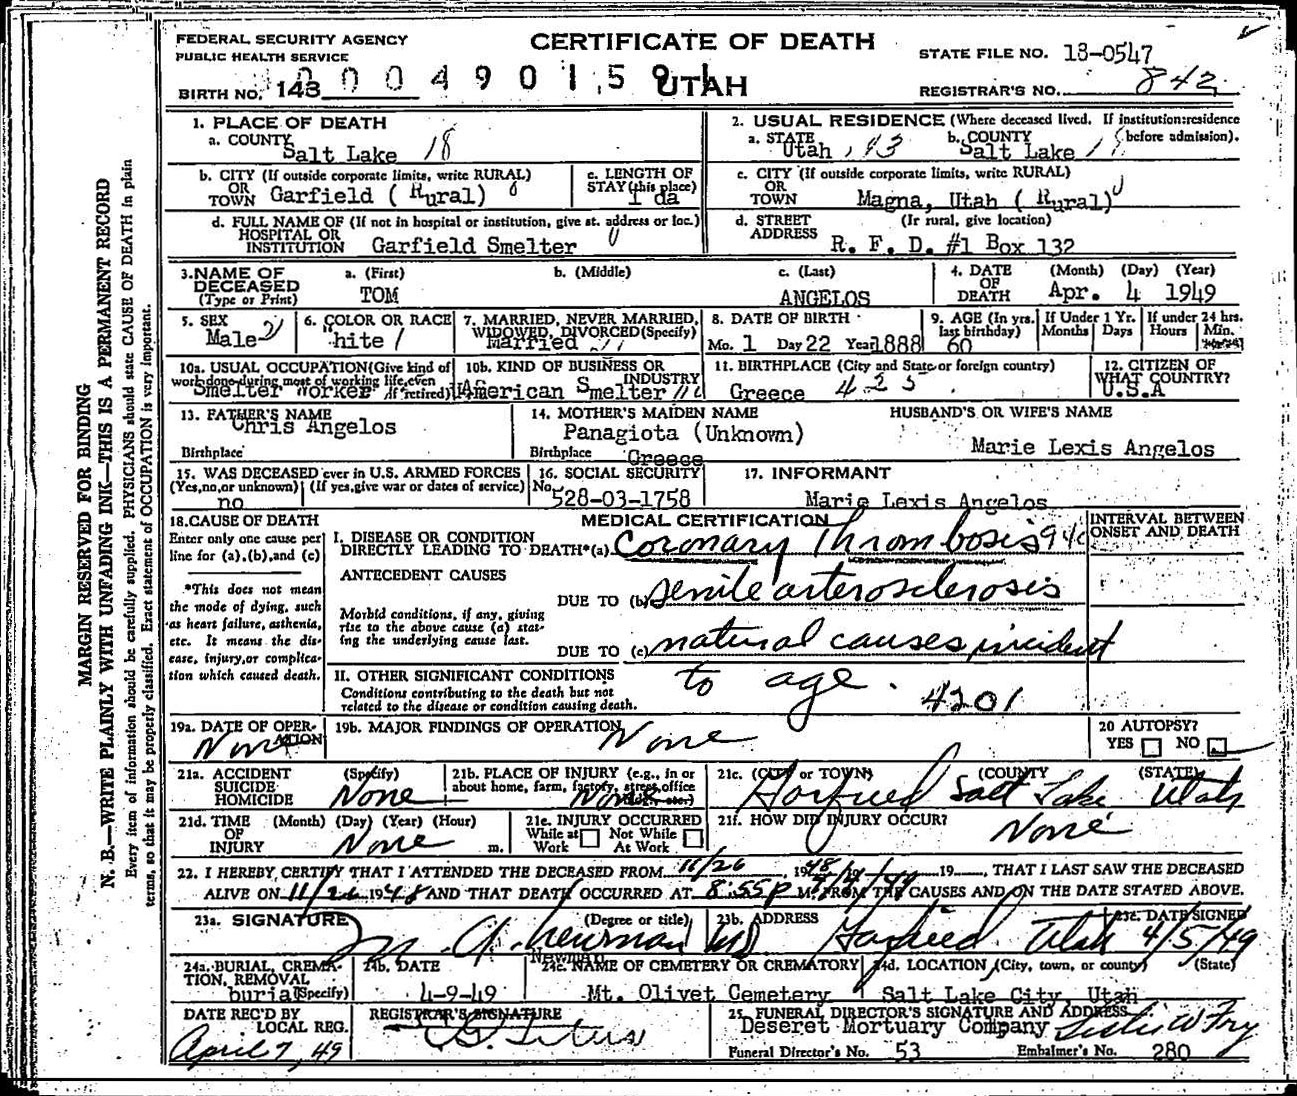 FEDERAL SECURITY AGENCY
PUBLIC HEALTH SERVICE
CERTIFICATE OF DEATH
STATE FILE NO. 18-0547
BIRTH NO. 143
0 0 4 9 0 1 5 9
UTAH
REGISTRAR'S NO. 842
MARGIN RESERVED FOR BINDING
N. B.—WRITE PLAINLY WITH UNFADING INK—THIS IS A PERMANENT RECORD
Every item of information should be carefully supplied. PHYSICIANS should state CAUSE OF DEATH in plain
terms, so that it may be properly classified. Exact statement of OCCUPATION is very important.
1. PLACE OF DEATH
a. COUNTY
Salt Lake 18
2. USUAL RESIDENCE (Where deceased lived. If institution:residence
before admission).
a. STATE
Utah
b. COUNTY
Salt Lake
b. CITY (If outside corporate limits, write RURAL)
OR
TOWN Garfield ( Rural)
c. LENGTH OF
STAY (this place)
1 da
c. CITY (If outside corporate limits, write RURAL)
OR
TOWN Magna, Utah ( Rural)
d. FULL NAME OF (If not in hospital or institution, give st. address or loc.)
HOSPITAL OR
INSTITUTION Garfield Smelter
d. STREET (If rural, give location)
ADDRESS R. F. D. #1 Box 132
3. NAME OF
DECEASED
(Type or Print)
a. (First)
TOM
b. (Middle)
c. (Last)
ANGELOS
4. DATE
OF
DEATH
(Month) (Day) (Year)
Apr. 4 1949
5. SEX
Male
6. COLOR OR RACE
hite
7. MARRIED, NEVER MARRIED,
WIDOWED, DIVORCED(Specify)
Married
8. DATE OF BIRTH
Mo. 1 Day 22 Year 1888
9. AGE (In yrs.
last birthday)
60
If Under 1 Yr.
Months Days
If under 24 hrs.
Hours Min.
10a. USUAL OCCUPATION(Give kind of
work done during most of working life, even
if retired)
Smelter Worker
10b. KIND OF BUSINESS OR
INDUSTRY
American Smelter
11. BIRTHPLACE (City and State or foreign country)
Greece 425
12. CITIZEN OF
WHAT COUNTRY?
U.S.A
13. FATHER'S NAME
Chris Angelos
Birthplace
14. MOTHER'S MAIDEN NAME
Panagiota (Unknown)
Birthplace Greece
HUSBAND'S OR WIFE'S NAME
Marie Lexis Angelos
15. WAS DECEASED ever in U.S. ARMED FORCES
(Yes,no,or unknown) (If yes,give war or dates of service)
no
16. SOCIAL SECURITY
No. 528-03-1758
17. INFORMANT
Marie Lexis Angelos
18. CAUSE OF DEATH
Enter only one cause per
line for (a),(b),and (c)
*This does not mean
the mode of dying, such
as heart failure, asthenia,
etc. It means the dis-
ease, injury,or complica-
tion which caused death.
MEDICAL CERTIFICATION
INTERVAL BETWEEN
ONSET AND DEATH
I. DISEASE OR CONDITION
DIRECTLY LEADING TO DEATH*(a) Coronary Thrombosis 94c
ANTECEDENT CAUSES
DUE TO (b) Senile arterosclerosis
Morbid conditions, if any, giving
rise to the above cause (a) stat-
ing the underlying cause last.
DUE TO (c) natural causes, incident
to age. 4201
II. OTHER SIGNIFICANT CONDITIONS
Conditions contributing to the death but not
related to the disease or condition causing death.
19a. DATE OF OPER-
ATION
None
19b. MAJOR FINDINGS OF OPERATION
None
20 AUTOPSY?
YES NO
21a. ACCIDENT
SUICIDE
HOMICIDE
(Specify)
None
21b. PLACE OF INJURY (e.g., in or
about home, farm, factory, street,office
bldg., etc.)
None
21c. (CITY or TOWN) (COUNTY) (STATE)
Garfield Salt Lake Utah
21d. TIME
OF
INJURY
(Month) (Day) (Year) (Hour)
None m.
21e. INJURY OCCURRED
While at Work Not While At Work
21f. HOW DID INJURY OCCUR?
None
22. I HEREBY CERTIFY THAT I ATTENDED THE DECEASED FROM 11/26, 1948, 19 , THAT I LAST SAW THE DECEASED
ALIVE ON 11/26 1948 AND THAT DEATH OCCURRED AT 8:55p M. FROM THE CAUSES AND ON THE DATE STATED ABOVE.
23a. SIGNATURE (Degree or title)
M. A. Newman MD
Newman
23b. ADDRESS
Garfield Utah
23c. DATE SIGNED
4/5/49
24a. BURIAL, CREMA-
TION, REMOVAL
(Specify)
burial
24b. DATE
4-9-49
24c. NAME OF CEMETERY OR CREMATORY
Mt. Olivet Cemetery
24d. LOCATION (City, town, or county) (State)
Salt Lake City, Utah
DATE REC'D BY
LOCAL REG.
April 7, 49
REGISTRAR'S SIGNATURE
25. FUNERAL DIRECTOR'S SIGNATURE AND ADDRESS
Deseret Mortuary Company
Funeral Director's No. 53 Embalmer's No. 280